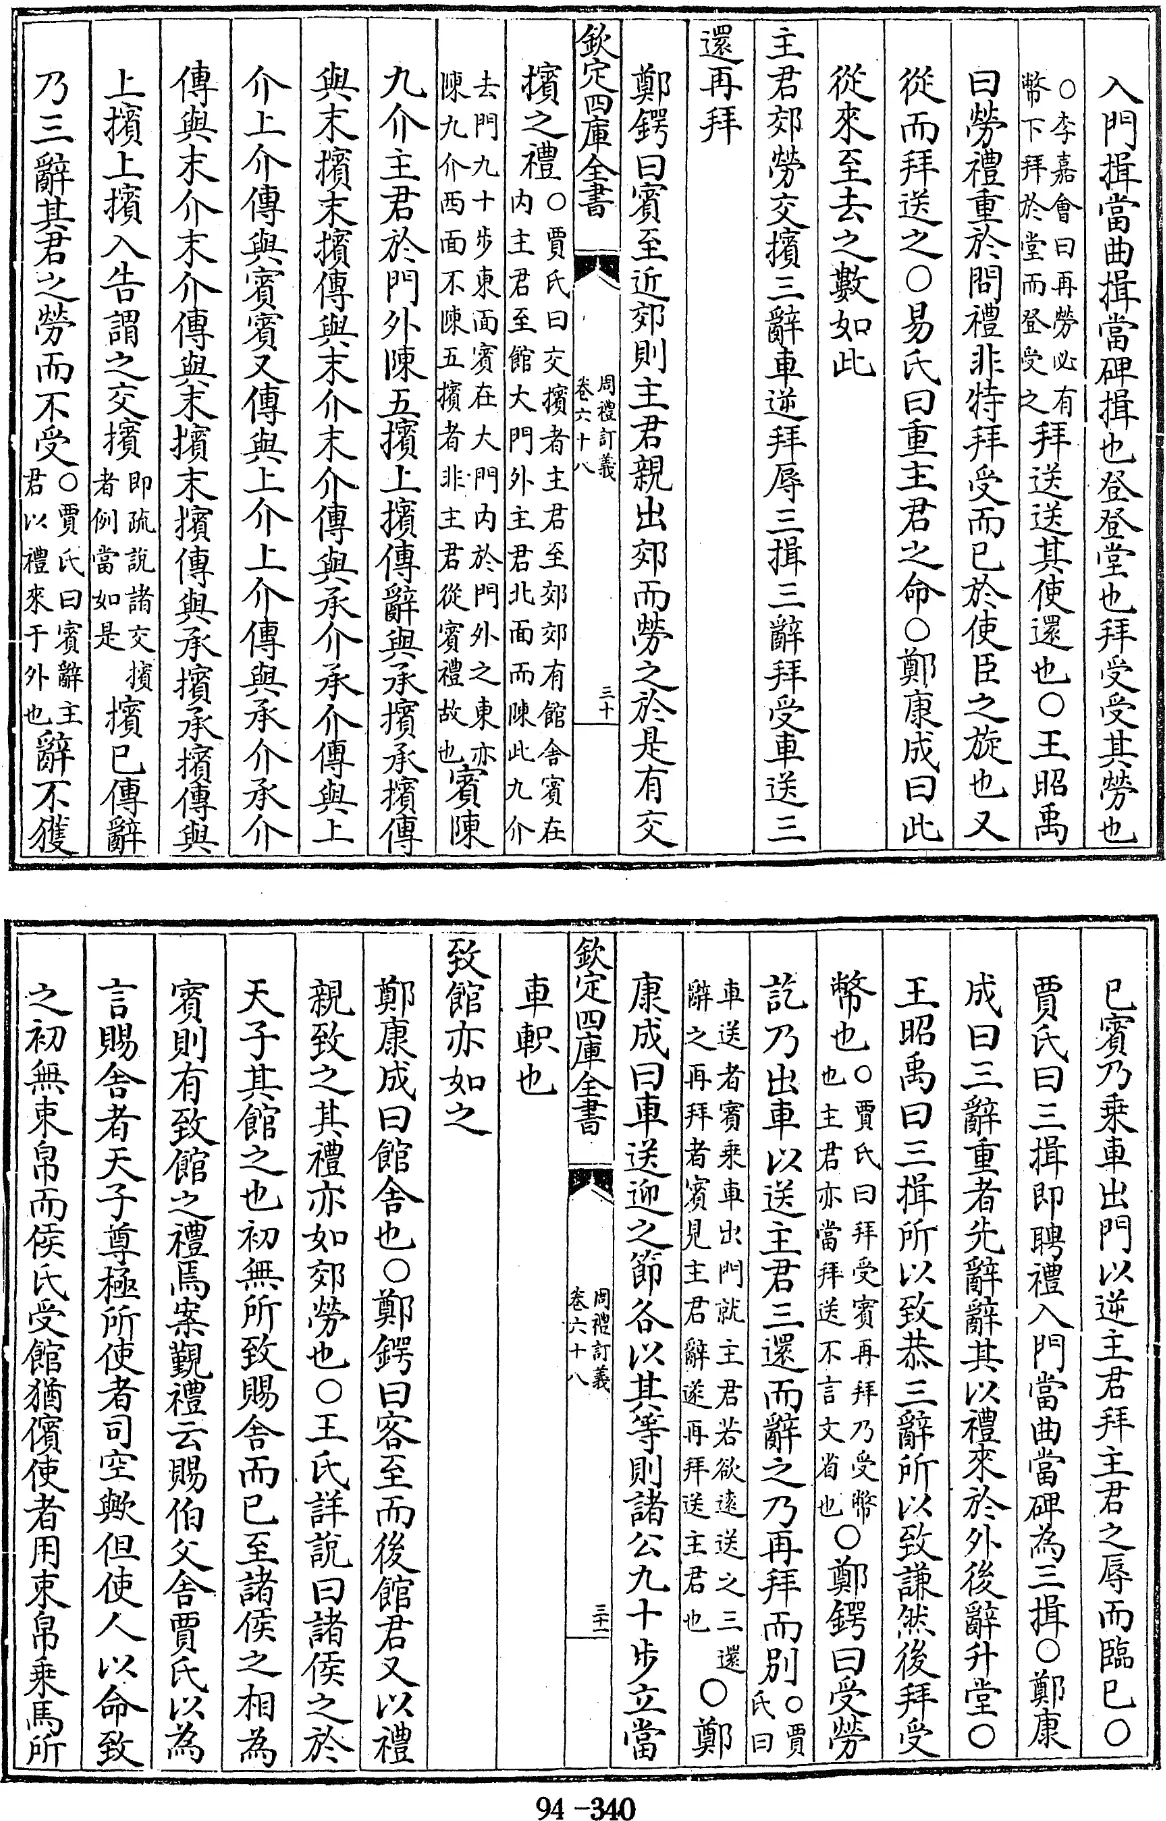 入門揖當曲揖當碑揖也登登堂也拜受受其勞也
○李嘉會曰再勞必有
幣下拜於堂而登受之
拜送送其使還也○王昭禹
曰勞禮重於問禮非特拜受而已於使臣之旋也又
從而拜送之○易氏曰重主君之命○鄭康成曰此
從來至去之數如此
主君郊勞交擯三辭車逆拜辱三揖三辭拜受車送三
還再拜
鄭鍔曰賓至近郊則主君親出郊而勞之於是有交
欽定四庫全書
周禮訂義
卷六十八
三十
擯之禮
○賈氏曰交擯者主君至郊郊有館舍賓在
内主君至館大門外主君北面而陳此九介
去門九十步東面賓在大門内於門外之東亦
陳九介西面不陳五擯者非主君從賓禮故也
賓陳
九介主君於門外陳五擯上擯傳辭與承擯承擯傳
與末擯末擯傳與末介末介傳與承介承介傳與上
介上介傳與賓賓又傳與上介上介傳與承介承介
傳與末介末介傳與末擯末擯傳與承擯承擯傳與
上擯上擯入告謂之交擯
即疏說諸交擯
者例當如是
擯已傳辭
乃三辭其君之勞而不受
○賈氏曰賓辭主
君以禮來于外也
辭不獲
已賓乃乘車出門以逆主君拜主君之辱而臨已○
賈氏曰三揖即聘禮入門當曲當碑為三揖○鄭康
成曰三辭重者先辭辭其以禮來於外後辭升堂○
王昭禹曰三揖所以致恭三辭所以致謙然後拜受
幣也
○賈氏曰拜受賓再拜乃受幣
也主君亦當拜送不言文省也
○鄭鍔曰受勞
訖乃出車以送主君三還而辭之乃再拜而別
○賈
氏曰
車送者賓乘車出門就主君若欲遠送之三還
辭之再拜者賓見主君辭遂再拜送主君也
○鄭
康成曰車送迎之節各以其等則諸公九十步立當
欽定四庫全書
周禮訂義
卷六十八
三十一
車軹也
致館亦如之
鄭康成曰館舍也○鄭鍔曰客至而後館君又以禮
親致之其禮亦如郊勞也○王氏詳說曰諸侯之於
天子其館之也初無所致賜舍而已至諸侯之相為
賓則有致館之禮焉案覲禮云賜伯父舍賈氏以為
言賜舍者天子尊極所使者司空歟但使人以命致
之初無束帛而侯氏受館猶儐使者用束帛乘馬所
94-340